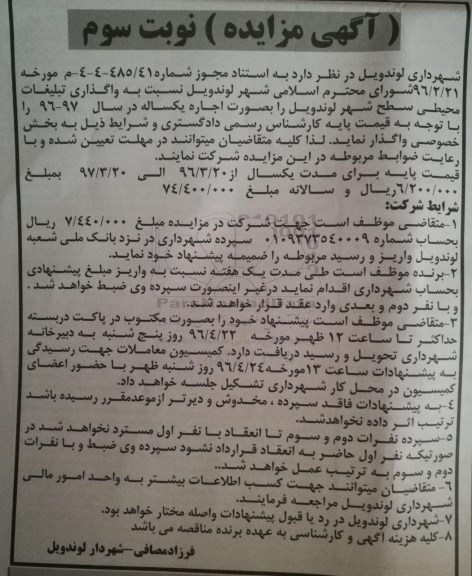 ( آگهی مزایده ) نوبت سوم
شهرداری لوندویل در نظر دارد به استناد مجوز شماره۴۸۵/۴۱-۴-۴-م مورخه
۹۶/۲/۲۱شورای محترم اسلامی شهر لوندویل نسبت به واگذاری تبلیغات
محیطی سطح شهر لوندویل را بصورت اجاره یکساله در سال ۹۷-۹۶ را
با توجه به قیمت پایه کارشناس رسمی دادگستری و شرایط ذیل به بخش
خصوصی واگذار نماید. لذا کلیه متقاضیان میتوانند در مهلت تعیین شده و با
رعایت ضوابط مربوطه در این مزایده شرکت نمایند.
قیمت پایه برای مدت یکسال از۹۶/۳/۲۰ الی ۹۷/۳/۲۰ بمبلغ
۶/۲۰۰/۰۰۰ریال و سالانه مبلغ ۷۴/۴۰۰/۰۰۰
شرایط شرکت:
۱-متقاضی موظف است جهت شرکت در مزایده مبلغ ۷/۴۴۰/۰۰۰ ریال
بحساب شماره ۰۱۰۹۳۷۳۵۴۰۰۰۹ سپرده شهرداری در نزد بانک ملی شعبه
لوندویل واریز و رسید مربوطه را ضمیمه پیشنهاد خود نماید.
۲-برنده موظف است طی مدت یک هفته نسبت به واریز مبلغ پیشنهادی
بحساب شهرداری اقدام نماید درغیر اینصورت سپرده وی ضبط خواهد شد .
و با نفر دوم و بعدی وارد عقد قرار خواهد شد.
۳-متقاضی موظف است پیشنهاد خود را بصورت مکتوب در پاکت دربسته
حداکثر تا ساعت ۱۲ ظهر مورخه ۹۶/۴/۲۲ روز پنج شنبه به دبیرخانه
شهرداری تحویل و رسید دریافت دارد. کمیسیون معاملات جهت رسیدگی
به پیشنهادات ساعت ۱۳مورخه۹۶/۴/۲۴ روز شنبه ظهر با حضور اعضای
کمیسیون در محل کار شهرداری تشکیل جلسه خواهد داد.
۴-به پیشنهادات فاقد سپرده ، مخدوش و دیرتر ازموعدمقرر رسیده باشد
ترتیب اثر داده نخواهدشد.
۵-سپرده نفرات دوم و سوم تا انعقاد با نفر اول مسترد نخواهد شد در
صورتیکه نفر اول حاضر به انعقاد قرارداد نشود سپرده وی ضبط و با نفرات
دوم و سوم به ترتیب عمل خواهد شد..
۶- متقاضیان میتوانند جهت کسب اطلاعات بیشتر به واحد امور مالی
شهرداری لوندویل مراجعه فرمایند.
۷-شهرداری لوندویل در رد یا قبول پیشنهادات واصله مختار خواهد بود.
۸-کلیه هزینه آگهی و کارشناسی به عهده برنده مناقصه می باشد
فرزادمصافی-شهردار لوندویل